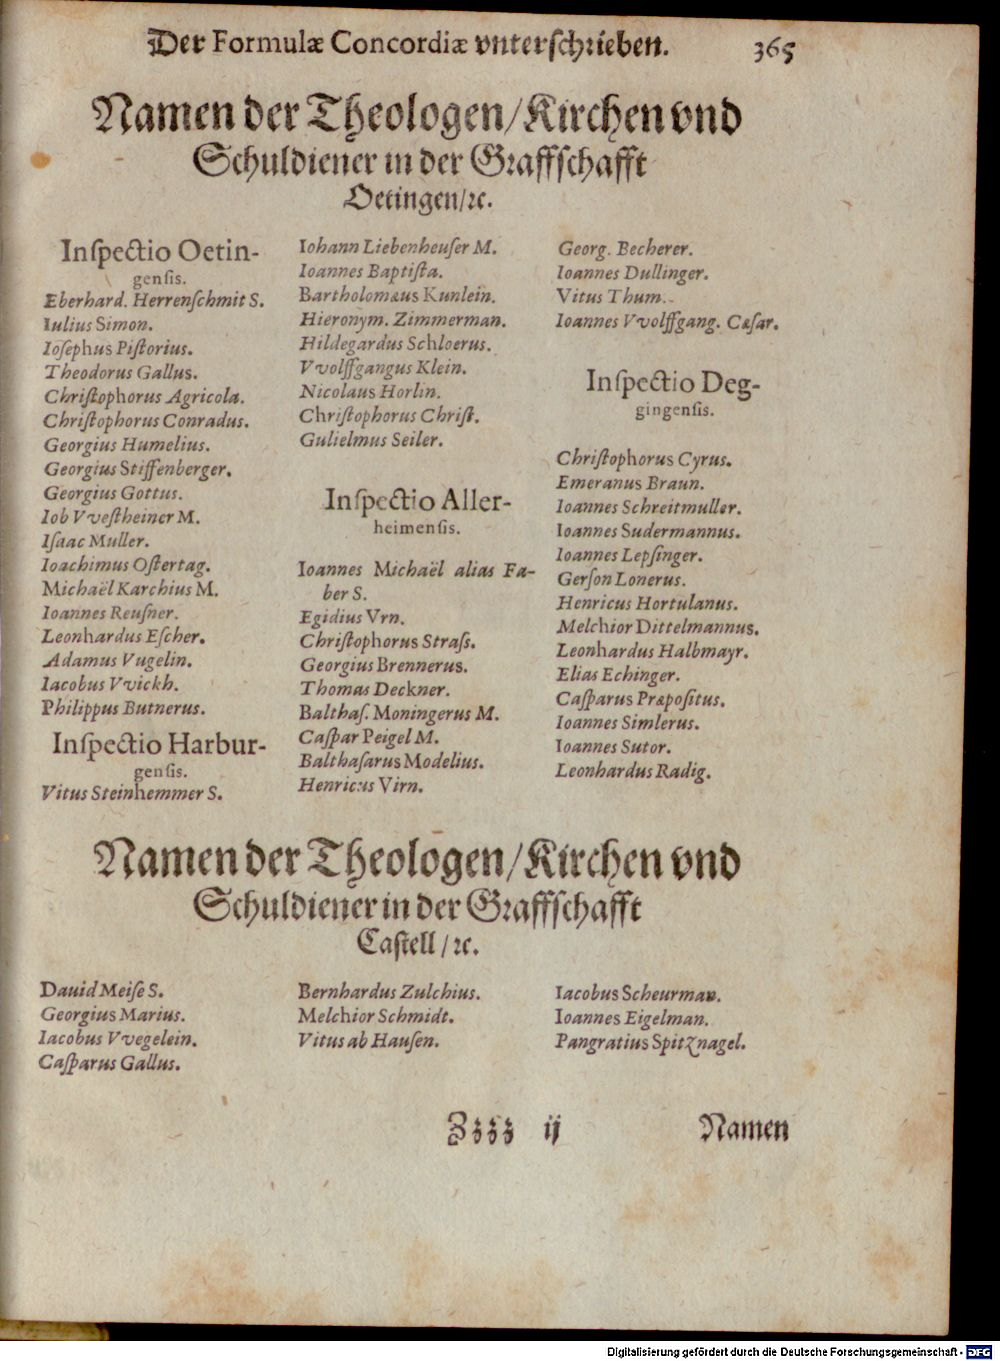 Der Formulæ Concordiæ vnterschrieben. 365
Namen der Theologen/Kirchen vnd
Schuldiener in der Graffschafft
Oetingen/ꝛc.
Inſpectio Oetin-
genſis.
Eberhard. Herrenſchmit S.
Iulius Simon.
Ioſephus Piſtorius.
Theodorus Gallus.
Chriſtophorus Agricola.
Chriſtophorus Conradus.
Georgius Humelius.
Georgius Stiffenberger.
Georgius Gottus.
Iob Vveſtheiner M.
Iſaac Muller.
Ioachimus Oſtertag.
Michaël Karchius M.
Ioannes Reuſner.
Leonhardus Eſcher.
Adamus Vugelin.
Iacobus Vvickh.
Philippus Butnerus.
Inſpectio Harbur-
genſis.
Vitus Steinhemmer S.
Iohann Liebenheuſer M.
Ioannes Baptiſta.
Bartholomæus Kunlein.
Hieronym. Zimmerman.
Hildegardus Schloerus.
Vvolffgangus Klein.
Nicolaus Horlin.
Chriſtophorus Chriſt.
Gulielmus Seiler.
Inſpectio Aller-
heimenſis.
Ioannes Michaël alias Fa-
ber S.
Egidius Vrn.
Chriſtophorus Straſs.
Georgius Brennerus.
Thomas Deckner.
Balthaſ. Moningerus M.
Caſpar Peigel M.
Balthaſarus Modelius.
Henricus Virn.
Georg. Becherer.
Ioannes Dullinger.
Vitus Thum.
Ioannes Vvolffgang. Cæſar.
Inſpectio Deg-
gingenſis.
Chriſtophorus Cyrus.
Emeranus Braun.
Ioannes Schreitmuller.
Ioannes Sudermannus.
Ioannes Lepſinger.
Gerſon Lonerus.
Henricus Hortulanus.
Melchior Dittelmannus.
Leonhardus Halbmayr.
Elias Echinger.
Caſparus Præpoſitus.
Ioannes Simlerus.
Ioannes Sutor.
Leonhardus Radig.
Namen der Theologen/Kirchen vnd
Schuldiener in der Graffschafft
Caſtell/ꝛc.
Dauid Meiſe S.
Georgius Marius.
Iacobus Vvegelein.
Caſparus Gallus.
Bernhardus Zulchius.
Melchior Schmidt.
Vitus ab Hauſen.
Iacobus Scheurman.
Ioannes Eigelman.
Pangratius Spitznagel.
Zzzz ij Namen
Digitalisierung gefördert durch die Deutsche Forschungsgemeinschaft - DFG